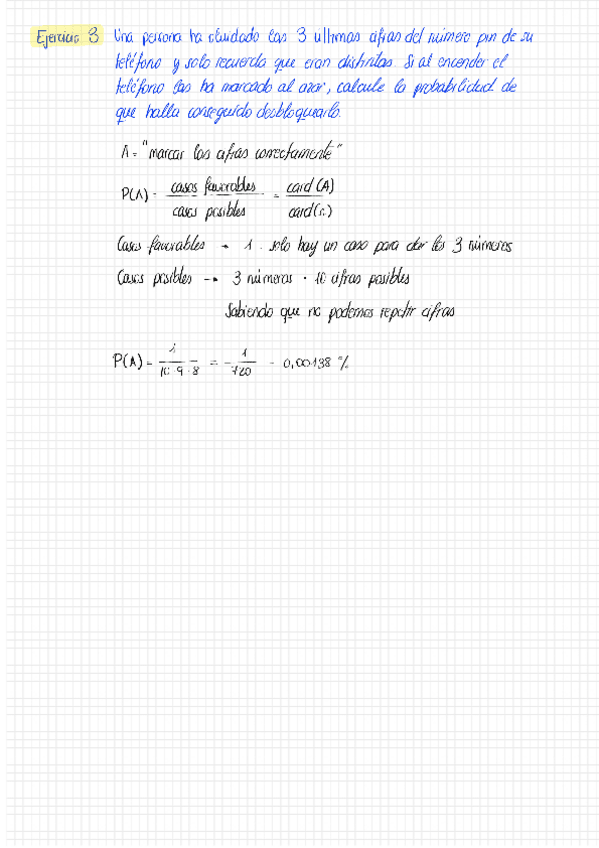 Ejercicio 3 Una persona ha olvidado las 3 ultimas cifras del número pin de su
teléfono y solo recuerda que eran distintas. Si al encender el
teléfono las ha marcado al azar, calcule la probabilidad de
que halla conseguido desbloquearlo.
A = "marcar las cifras correctamente"
P(A) = casos favorables / casos posibles = card(A) / card(Ω)
Casos favorables → 1. solo hay un caso para dar los 3 números
Casos posibles → 3 números · 10 cifras posibles
Sabiendo que no podemos repetir cifras
P(A) = 1 / 10·9·8 = 1 / 720 = 0,00138 %